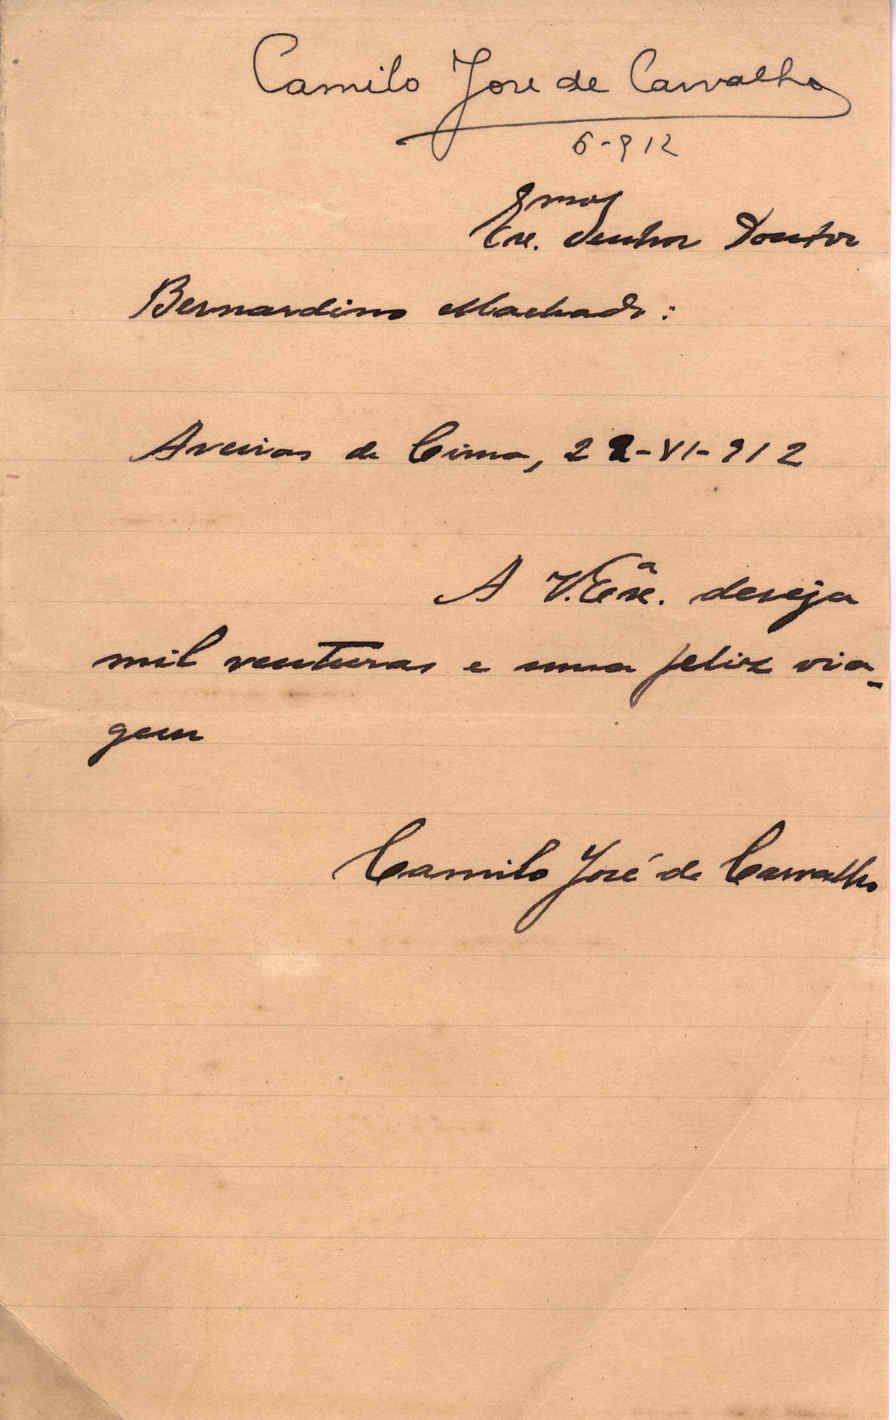 Camilo José de Carvalho
6-912
Exmo.
Senhor Doutor
Bernardino Machado:
Aveiras de Cima, 22-VI-912
A V. Exª. deseja
mil venturas e uma feliz via-
gem
Camilo José de Carvalho